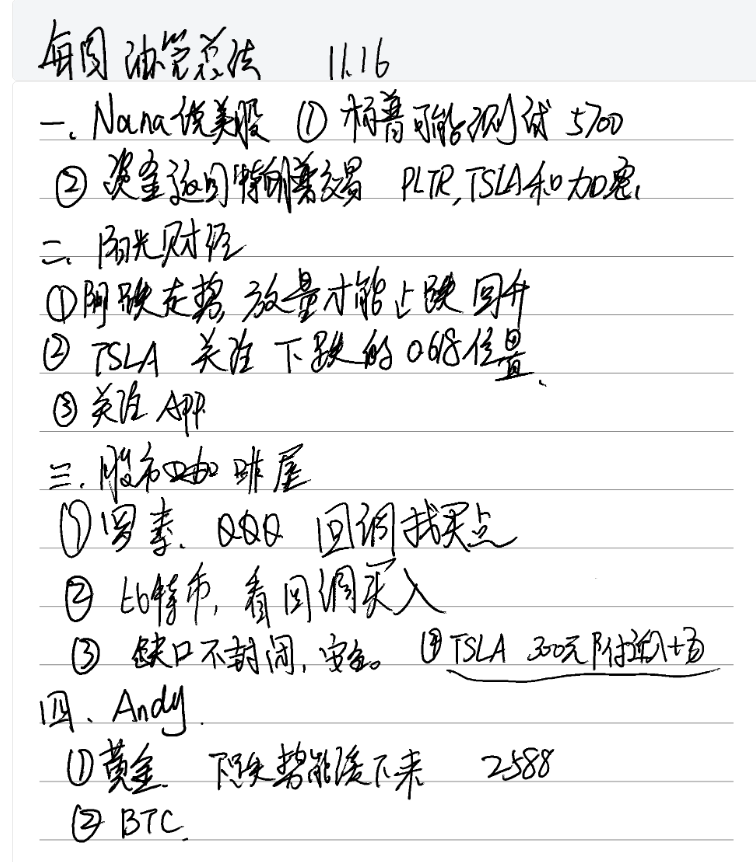 每周油管总结 11.16
一、Nana说美股 ① 标普可能测试 5700
② 资金返回特朗普交易 PLTR,TSLA和加密.
二、阳光财经
①阴跌走势,放量才能止跌回升
② TSLA 关注下跌的0.618位置、
③ 关注 APP
三、股市咖啡屋
①罗素、QQQ 回调找买点
② 比特币,看回调买入
③ 缺口不封闭,安全。 ④TSLA 300元附近入场
四、Andy.
①黄金 下跌势能缓下来 2588
② BTC.